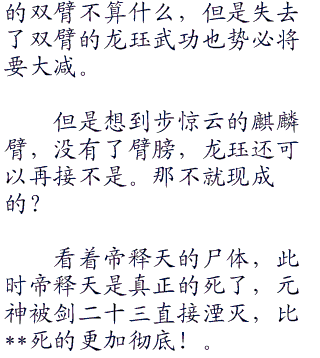 的双臂不算什么，但是失去
了双臂的龙珏武功也势必将
要大减。
但是想到步惊云的麒麟
臂，没有了臂膀，龙珏还可
以再接不是。那不就现成
的？
看着帝释天的尸体，此
时帝释天是真正的死了，元
神被剑二十三直接湮灭，比
**死的更加彻底！。